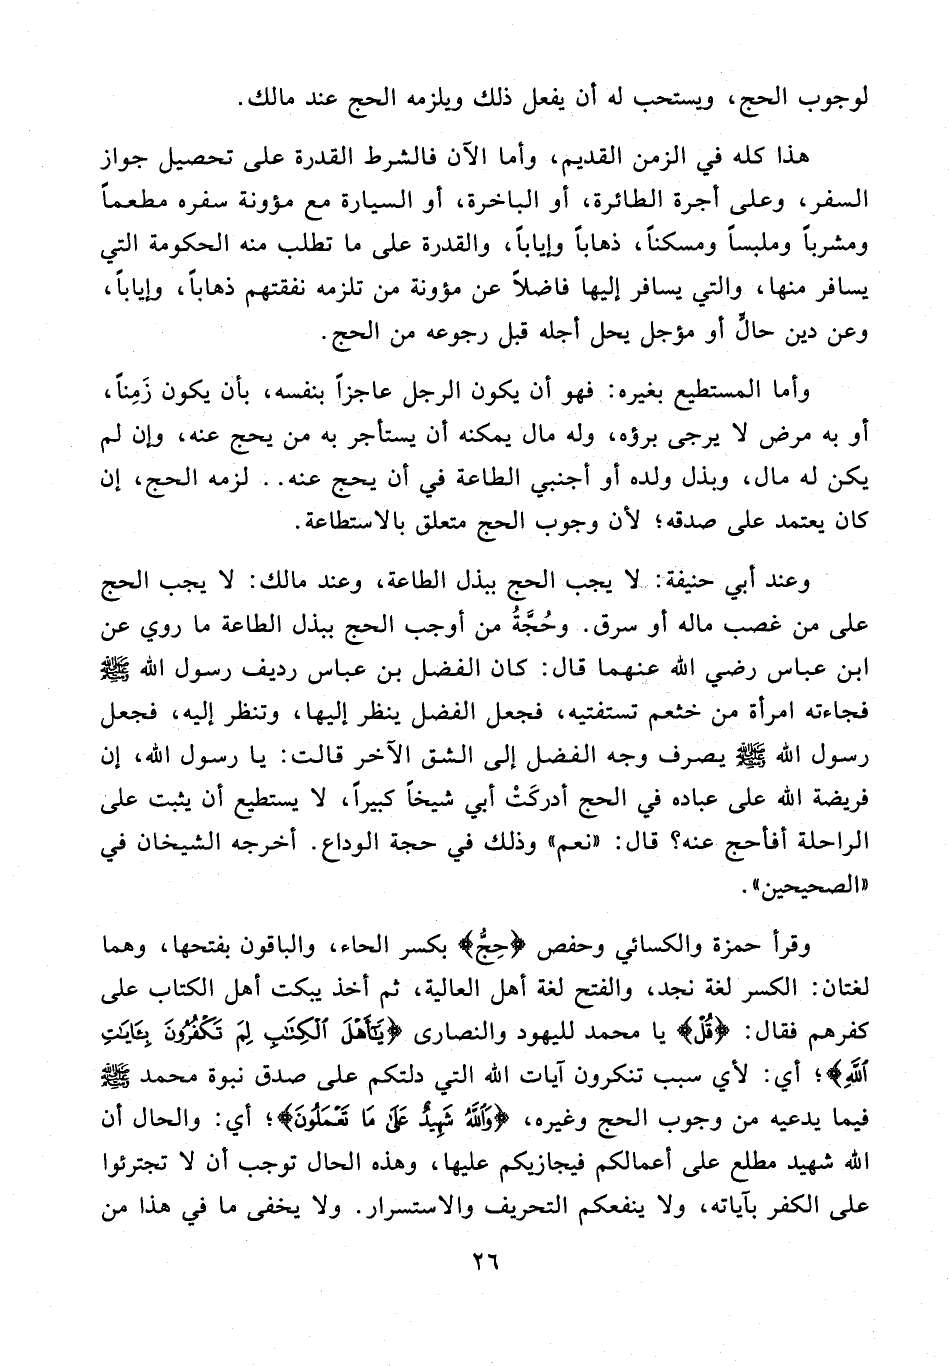 لوجوب الحج، ويستحب له أن يفعل ذلك ويلزمه الحج عند مالك.
هذا كله في الزمن القديم، وأما الآن فالشرط القدرة على تحصيل جواز
السفر، وعلى أجرة الطائرة، أو الباخرة، أو السيارة مع مؤونة سفره مطعماً
ومشرباً وملبساً ومسكناً، ذهاباً وإياباً، والقدرة على ما تطلب منه الحكومة التي
يسافر منها، والتي يسافر إليها فاضلاً عن مؤونة من تلزمه نفقتهم ذهاباً، وإياباً،
وعن دين حالٍّ أو مؤجل يحل أجله قبل رجوعه من الحج.
وأما المستطيع بغيره: فهو أن يكون الرجل عاجزاً بنفسه، بأن يكون زَمِناً،
أو به مرض لا يرجى برؤه، وله مال يمكنه أن يستأجر به من يحج عنه، وإن لم
يكن له مال، وبذل ولده أو أجنبي الطاعة في أن يحج عنه.. لزمه الحج، إن
كان يعتمد على صدقه؛ لأن وجوب الحج متعلق بالاستطاعة.
وعند أبي حنيفة: لا يجب الحج ببذل الطاعة، وعند مالك: لا يجب الحج
على من غصب ماله أو سرق. وحُجَّةُ من أوجب الحج ببذل الطاعة ما روي عن
ابن عباس رضي الله عنهما قال: كان الفضل بن عباس رديف رسول الله ﷺ
فجاءته امرأة من خثعم تستفتيه، فجعل الفضل ينظر إليها، وتنظر إليه، فجعل
رسول الله ﷺ يصرف وجه الفضل إلى الشق الآخر قالت: يا رسول الله، إن
فريضة الله على عباده في الحج أدركَتْ أبي شيخاً كبيراً، لا يستطيع أن يثبت على
الراحلة أفأحج عنه؟ قال: «نعم» وذلك في حجة الوداع. أخرجه الشيخان في
«الصحيحين».
وقرأ حمزة والكسائي وحفص ﴿حِجُّ﴾ بكسر الحاء، والباقون بفتحها، وهما
لغتان: الكسر لغة نجد، والفتح لغة أهل العالية، ثم أخذ يبكت أهل الكتاب على
كفرهم فقال: ﴿قُلْ﴾ يا محمد لليهود والنصارى ﴿يَٰٓأَهْلَ ٱلْكِتَٰبِ لِمَ تَكْفُرُونَ بِـَٔايَٰتِ
ٱللَّهِ﴾؛ أي: لأي سبب تنكرون آيات الله التي دلتكم على صدق نبوة محمد ﷺ
فيما يدعيه من وجوب الحج وغيره، ﴿وَٱللَّهُ شَهِيدٌ عَلَىٰ مَا تَعْمَلُونَ﴾؛ أي: والحال أن
الله شهيد مطلع على أعمالكم فيجازيكم عليها، وهذه الحال توجب أن لا تجترئوا
على الكفر بآياته، ولا ينفعكم التحريف والاستسرار. ولا يخفى ما في هذا من
٢٦